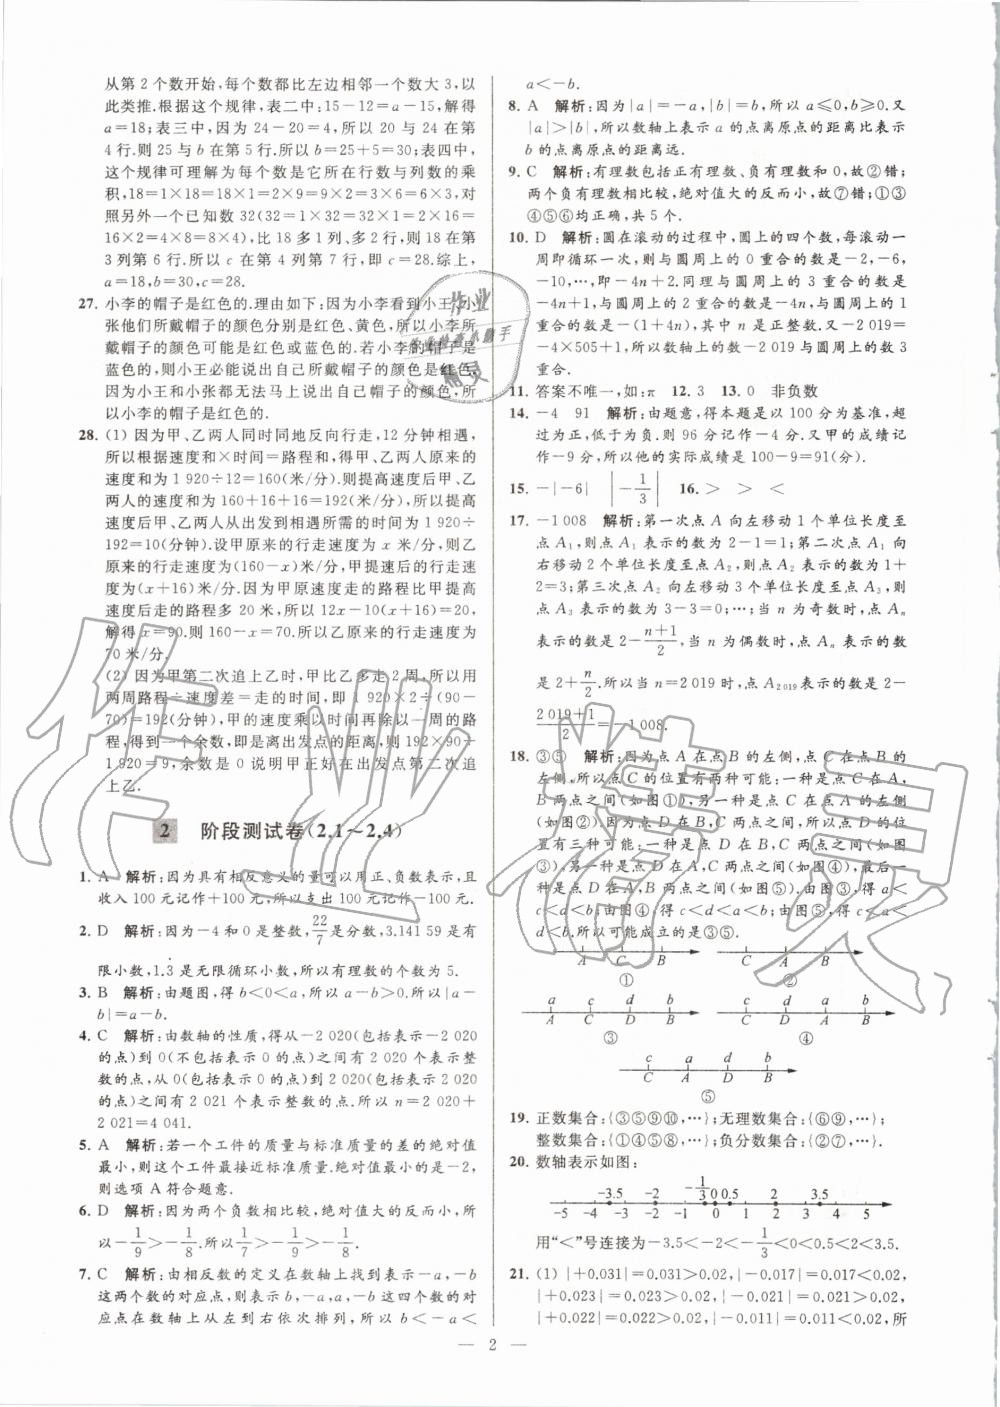 从第 2 个数开始,每个数都比左边相邻一个数大 3,以
此类推.根据这个规律,表二中:15-12=a-15,解得
a=18;表三中,因为 24-20=4,所以 20 与 24 在第
4 行.则 25 与 b 在第 5 行,所以 b=25+5=30;表四中,
这个规律可理解为每个数是它所在行数与列数的乘
积,18=1×18=18×1=2×9=9×2=3×6=6×3,对
照另外一个已知数 32(32=1×32=32×1=2×16=
16×2=4×8=8×4),比 18 多 1 列、多 2 行,则 18 在第
3 列第 6 行.所以 c 在第 4 列第 7 行,即 c=28.综上,
a=18,b=30,c=28.
27. 小李的帽子是红色的.理由如下:因为小李看到小王、小
张他们所戴帽子的颜色分别是红色、黄色,所以小李所
戴帽子的颜色可能是红色或蓝色.若小李的帽子是
蓝色的,则小王必能说出自己所戴帽子的颜色是红色.
因为小王和小张都无法马上说出自己帽子的颜色,所
以小李的帽子是红色的.
28. (1) 因为甲、乙两人同时同地反向行走,12 分钟相遇,
所以根据速度和×时间=路程和,得甲、乙两人原来的
速度和为 1 920÷12=160(米/分).则提高速度后甲、乙
两人的速度和为 160+16+16=192(米/分),所以提高
速度后,甲、乙两人从出发到相遇所需的时间为 1 920÷
192=10(分钟).设甲原来的行走速度为 x 米/分,则乙
原来的行走速度为(160-x)米/分,甲提高速度后为
(x+16)米/分.因为甲原来走的路程比甲提高速度后
走的路程多 20 米,所以 12x-10(x+16)=20,
解得 x=90.则 160-x=70.所以乙原来的行走速度为
70 米/分.
(2) 因为甲第二次追上乙,甲比乙多走 2 周,所以用
两周路程÷速度差=走的时间,即 1 920×2÷(90-
70)=192(分钟),甲的速度乘以时间再除以一周的路
程,得到一个余数,即是离出发点的距离,则 192×90÷
1 920=9,余数是 0 说明甲正好在出发点第二次追上
乙.
2 阶段测试卷(2.1~2.4)
1. A 解析:因为具有相反意义的量可以用正、负数表示,且
收入 100 元记作+100 元,所以支出 100 元记作-100 元.
2. D 解析:因为-4 和 0 是整数,22/7 是分数,3.141 59 是有
限小数,1.3̇ 是无限循环小数,所以有理数的个数为 5.
3. B 解析:由题图,得 b<0<a,所以 a-b>0.所以|a-
b|=a-b.
4. C 解析:由数轴的性质,得从-2 020(包括表示-2 020
的点)到 0(不包括表示 0 的点)之间有 2 020 个表示整
数的点,从 0(包括表示 0 的点)到 2 020(包括表示 2 020
的点)之间有 2 021 个表示整数的点.所以 n=2 020+
2 021=4 041.
5. A 解析:若一个工件的质量与标准质量的差的绝对值
最小,则这个工件最接近标准质量.绝对值最小的是-2,
则选项 A 符合题意.
6. D 解析:因为两个负数相比较,绝对值大的反而小,所
以-1/9>-1/8,-1/9>-1/8.
7. C 解析:由相反数的定义在数轴上找到表示-a,-b
这两个数的对应点,则表示 b,-a,a,-b 这四个数的对
应点在数轴上从左到右依次排列,所以 b<-a<
a<-b.
8. A 解析:因为|a|=-a,|b|=b,所以 a≤0,b≥0.又
|a|>|b|,所以数轴上表示 a 的点离原点的距离比表示
b 的点离原点的距离远.
9. C 解析:有理数包括正有理数、负有理数和 0,故②错;
两个负有理数相比较,绝对值大的反而小,故⑦错;①③
④⑤⑥均正确,共 5 个.
10. D 解析:圆在滚动的过程中,圆上的四个数,每滚动一
周即循环一次,则与圆周上的 0 重合的数是-2,-6,
-10,…,即-4n+2.同理与圆周上的 3 重合的数是
-4n+1,与圆周上的 2 重合的数是-4n,与圆周上的
1 重合的数是-4n-1,其中 n 是正整数.又-2 019=
-4×505+1,所以数轴上的数-2 019 与圆周上的数 3
重合.
11. 答案不唯一,如:π 12. 3 13. 0 非负数
14. -4 91 解析:由题意,得本题是以 100 分为基准,超
过为正,低于为负.则 96 分记作-4 分.又甲的成绩记
作-9 分,所以他的实际成绩是 100-9=91(分).
15. -|-6| |-1/3| 16. > > <
17. -1 008 解析:第一次点 A 向左移动 1 个单位长度至
点 A₁,则点 A₁ 表示的数为 2-1=1;第二次点 A₁ 向
右移动 2 个单位长度至点 A₂,则点 A₂ 表示的数为 1+
2=3;第三次点 A₂ 向左移动 3 个单位长度至点 A₃,则
点 A₃ 表示的数为 3-3=0;…;当 n 为奇数时,点 Aₙ
表示的数是 2-(n+1)/2,当 n 为偶数时,点 Aₙ 表示的数
是 2+n/2.所以当 n=2 019 时,点 A₂₀₁₉ 表示的数是 2-
(2 019+1)/2=-1 008.
18. ③⑤ 解析:因为点 A 在点 B 的左侧,点 C 在点 B 的
左侧,所以点 C 的位置有两种可能:一种是点 C 在 A、B
两点之间(如图①),另一种是点 C 在点 A 的左侧
(如图②).因为点 D 在 B、C 两点之间,所以点 D 的位
置有三种可能:一种是点 D 在 B、C 两点之间(如图
③),另一种是点 D 在 A、C 两点之间(如图④),一种是
点 D 在 A、B 两点之间(如图⑤).由图③,得 a<
c<d<b;由图④,得 c<d<a<b;由图⑤,得 c<a<
d<b.所以可能成立的是③⑤.
A C B
①
C A B
②
a c d b
A C D B
③
c d a b
C D A B
④
c a d b
C A D B
⑤
19. 正数集合:{③⑤⑨⑩,…};无理数集合:{⑥⑨,…};
整数集合:{①④⑤⑧,…};负分数集合:{②⑦,…}.
20. 数轴表示如图:
-3.5 -2 -1/3 0 0.5 2 3.5
-5 -4 -3 -2 -1 0 1 2 3 4 5
用“<”号连接为-3.5<-2<-1/3<0<0.5<2<3.5.
21. (1) |+0.031|=0.031>0.02,|-0.017|=0.017<0.02,
|+0.023|=0.023>0.02,|-0.021|=0.021>0.02,
|+0.022|=0.022>0.02,|-0.011|=0.011<0.02,所
— 2 —
作业精灵